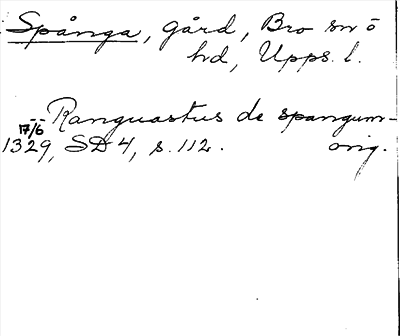 Spånga, gård, Bro sn o
hd, Upps. l.
-- Ranguastus de spangum -
17/6
1329, SD 4, s. 112. orig.